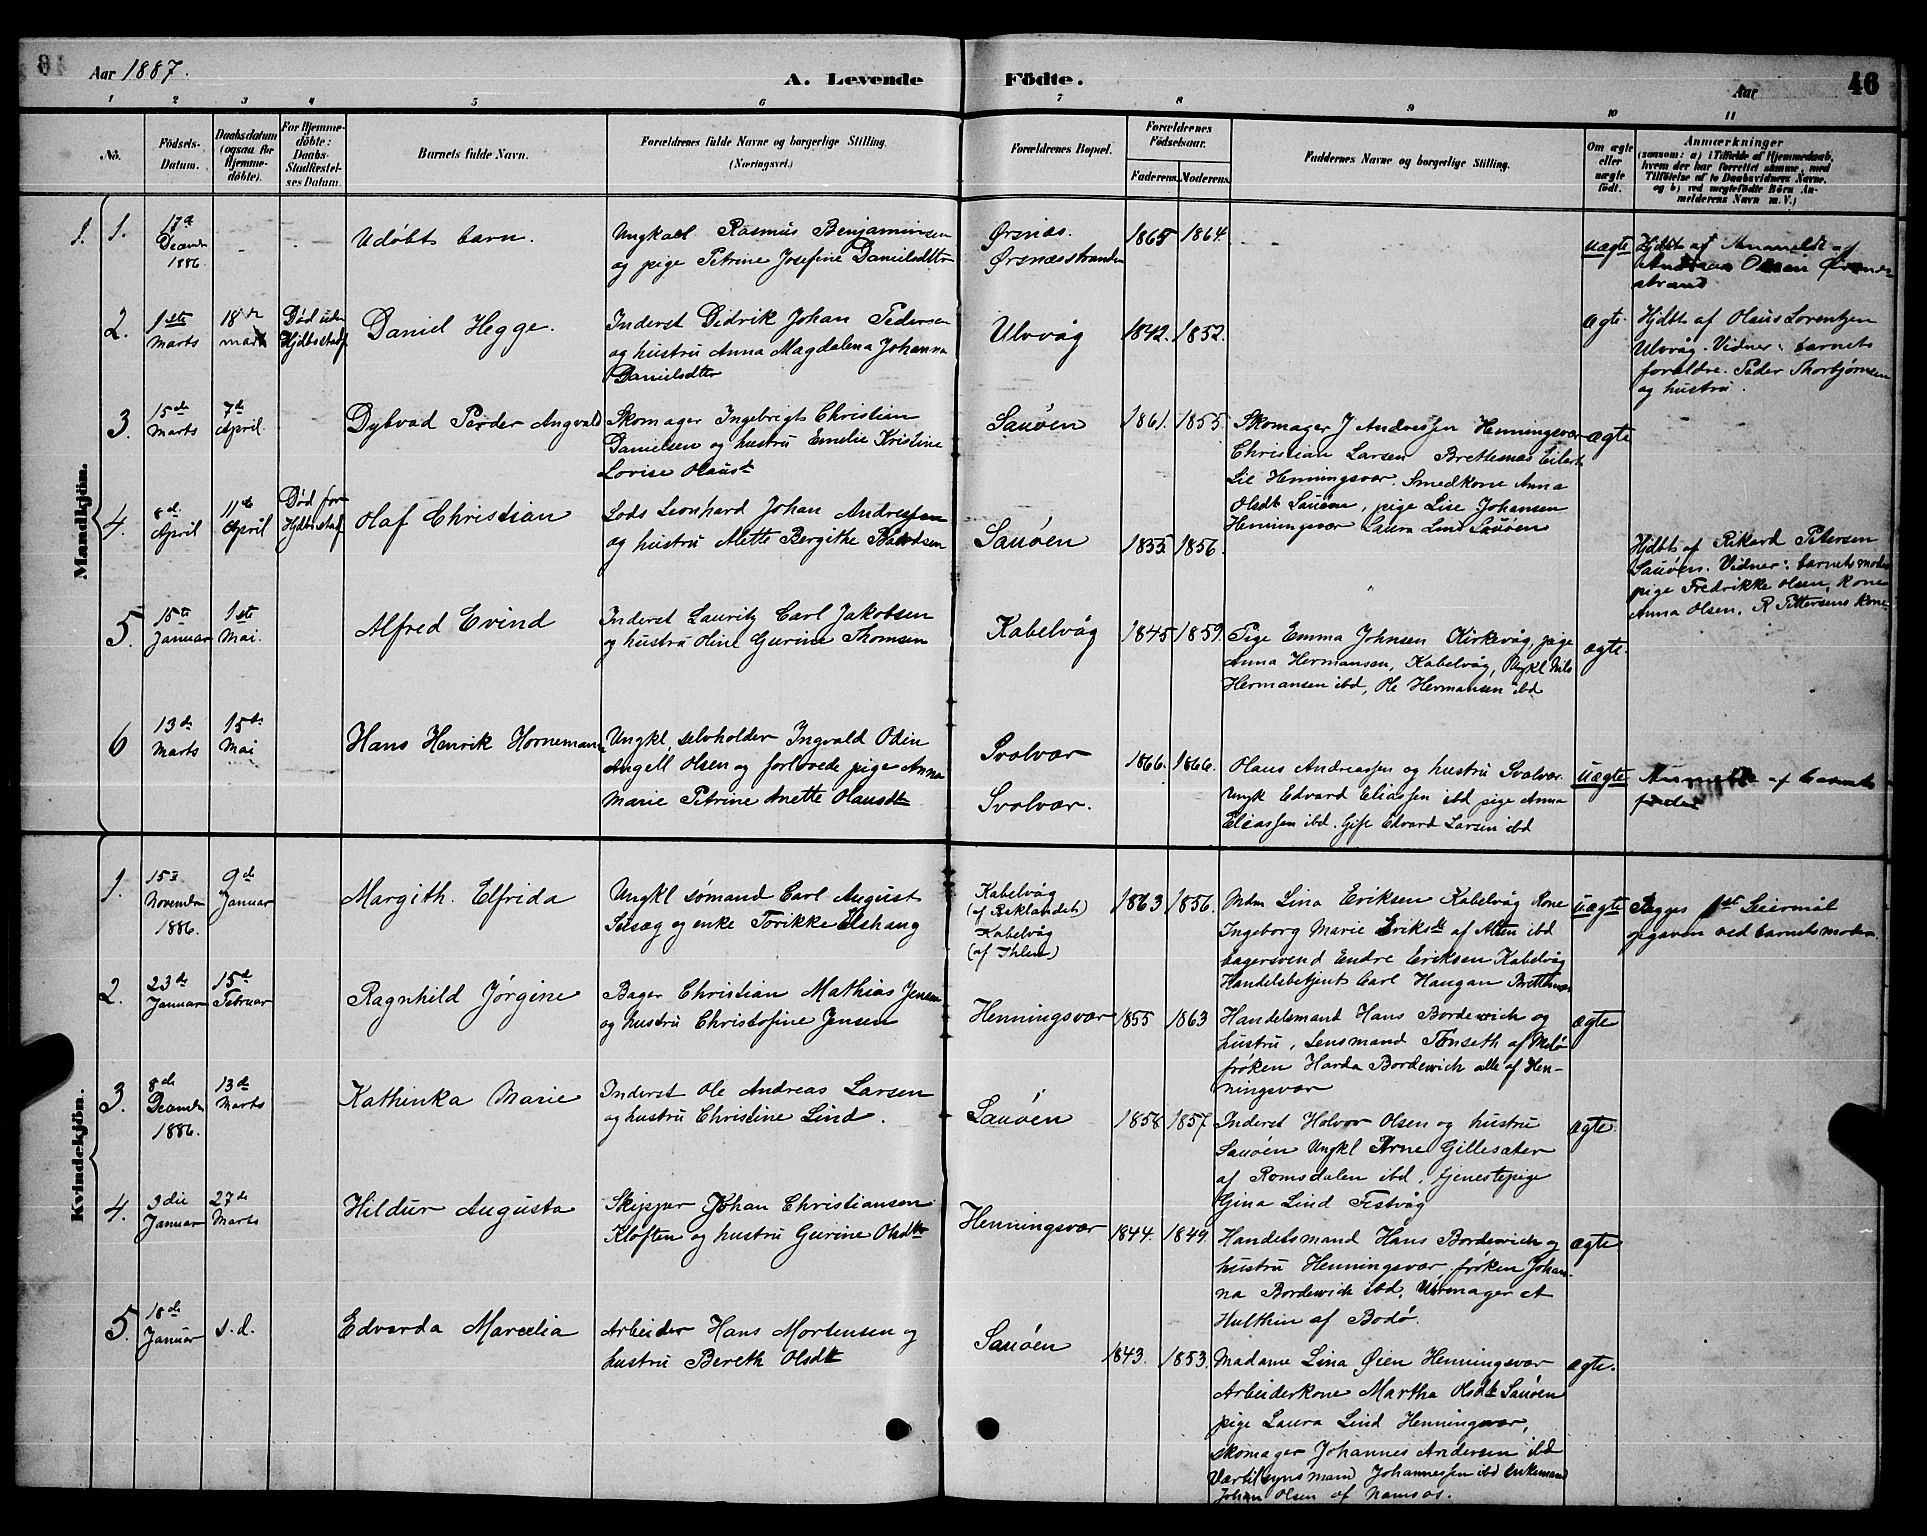 Aar 1887.
A. Levende
Födte.
Aar
46
1 2 3 4 5 6 7 8 9 10 11
No.
Födsels-
Datum.
Daabsdatum
(ogsaa for
Hjemme-
döbte).
For Hjemme-
döbte:
Daabs-
Stadfæstel-
ses Datum.
Barnets fulde Navn.
Forældrenes fulde Navne og borgerlige Stilling.
(Næringsvei.)
Forældrenes Bopæl.
Forældrenes
Födselsaar.
Faderens. Moderens.
Faddernes Navne og borgerlige Stilling.
Om ægte
eller
uægte
födt.
Anmærkninger
(saasom: a) i Tilfælde af Hjemmedaab,
hvem der har forrettet samme, med
Tilföielse af to Daabsvidners Navne,
og b) ved uægtefödte Börn An-
melderens Navn m. V.)
Mandkjön.
1. 1.
17de
Decembr
1886
Udøbt barn.
Ungkarl Rasmus Benjaminsen
og pige Petrine Josefine Danielsdttr
Ørsnæs.
Ørsnæsstranden
1865 1864.
uægte
Hjdbt af Anmeldt af
Andreas Olsen Ørsnæs
strand
2.
1ste
Marts
18de
marts
Død uden
Hjdbtsstadf
Daniel Hegge.
Inderst Didrik Johan Pedersen
og hustru Anna Magdalena Johanna
Danielsdttr
Ulvvåg
1842. 1852.
ægte.
Hjdbt af Olaus Lorentzen
Ulvvåg. Vidner: barnets
forældre. Peder Thorbjørnsen
og hustru.
3.
15de
Marts
7de
April
Dybvad Peder Angvald
Skomager Ingebrigt Christian
Danielsen og hustru Emelie Kristine
Lovise Olausdt
Sauøen
1861. 1855.
Skomager J Andressen Henningsvær
Christian Larsen Brettesnæs Eilert
Lie Henningsvær. Smedkone Anna
Olsdt Sauøen, pige Lise Johansen
Henningsvær Laura Lind Sauøen
ægte
4.
8de
April
11te
April
Død før
Hjdbtsstadf
Olaf Christian
Lods Leonhard Johan Andressen
og hustru Alette Bergithe Bårdsen
Sauøen
1855. 1856.
Hjdbt af Rikard Petersen
Sauøen. Vidner: barnets moder
pige Fredrikke Olsen, Kone
Anna Olsen, R Pettersens Kone
5.
15te
Januar
1ste
Mai.
Alfred Evind
Inderst Lauritz Carl Jakobsen
og hustru Oline Gurine Thomsen
Kabelvåg
1845 1859.
Pige Emma Johnsen Kirkevåg, pige
Anna Hermansen, Kabelvåg, Ungkl Nils
Hermansen ibd, Ole Hermansen ibd
ægte.
6
13de
Marts
15de
Mai
Hans Henrik Hornemann
Ungkl, selvholder Ingvald Odin
Angell Olsen og forlovede pige Anna
Marie Petrine Anette Olausdt
Svolvær
Svolvær.
1866. 1866.
Olaus Andreassen og hustru Svolvær.
Ungk Edvard Eliassen ibd pige Anna
Eliassen ibd. Gift Edvard Larsen ibd
uægte
Anmeldt af barnets
fader
Kvindekjön.
1.
15de
November
1886.
9de
Januar
Margith. Elfrida
Ungkl sømand Carl August
og enke Torikke Elshaug
Kabelvåg
(af Raklandet)
Kabelvåg
(af Ihlen)
1863 1856.
Mdm Lina Eriksen Kabelvåg Kone
Ingeborg Marie Eriksdt af Alten ibd
bagersvend Endre Eriksen Kabelvåg
Handelsbetjent Carl Haugan Brettesnæs
uægte
Begges 1ste Leiermål
opgaven ved barnets moder.
2.
23de
Januar
15de
Februar
Ragnhild Jørgine
Bager Christian Mathias Jensen
og hustru Christofine Jensen
Henningsvær
1855 1863
Handelsmand Hans Bordewich og
hustru, Lensmand Tønseth af Melø
frøken Harda Bordewich alle af Hen-
ningsvær
ægte
3.
8de
Decembr
1886.
13de
Marts
Kathinka Marie
Inderst Ole Andreas Larsen
og hustru Christine Lind.
Sauøen
1858 1857
Inderst Halvor Olsen og hustru
Sauøen Ungkl Arne Gillesæter
af Romsdalen ibd, tjenestepige
Gina Lind Festvåg
ægte.
4.
3die
Januar
27de
Marts
Hildur Augusta
Skipper Johan Christiansen
Kløften og hustru Gurine Olsdttr
Henningsvær
1844. 1849.
Handelsmand Hans Bordewich og
hustru Henningsvær frøken Johan-
na Bordewich ibd, Urmager et
Hulthin af Bodø.
ægte
5.
18de
Januar
s.d.
Edvarda Marcelia
Arbeider Hans Mortensen og
hustru Bereth Olsdtt
Sauøen
1843. 1853.
Madame Lina Øien Henningsvær
Arbeiderkone Martha Olsdt Sauøen
pige Laura Lind Henningsvær,
skomager Johannes Andersen ibd
Værtilsynsmand Johannessen ibd enkemand
Johan Olsen af Namsos.
ægte.